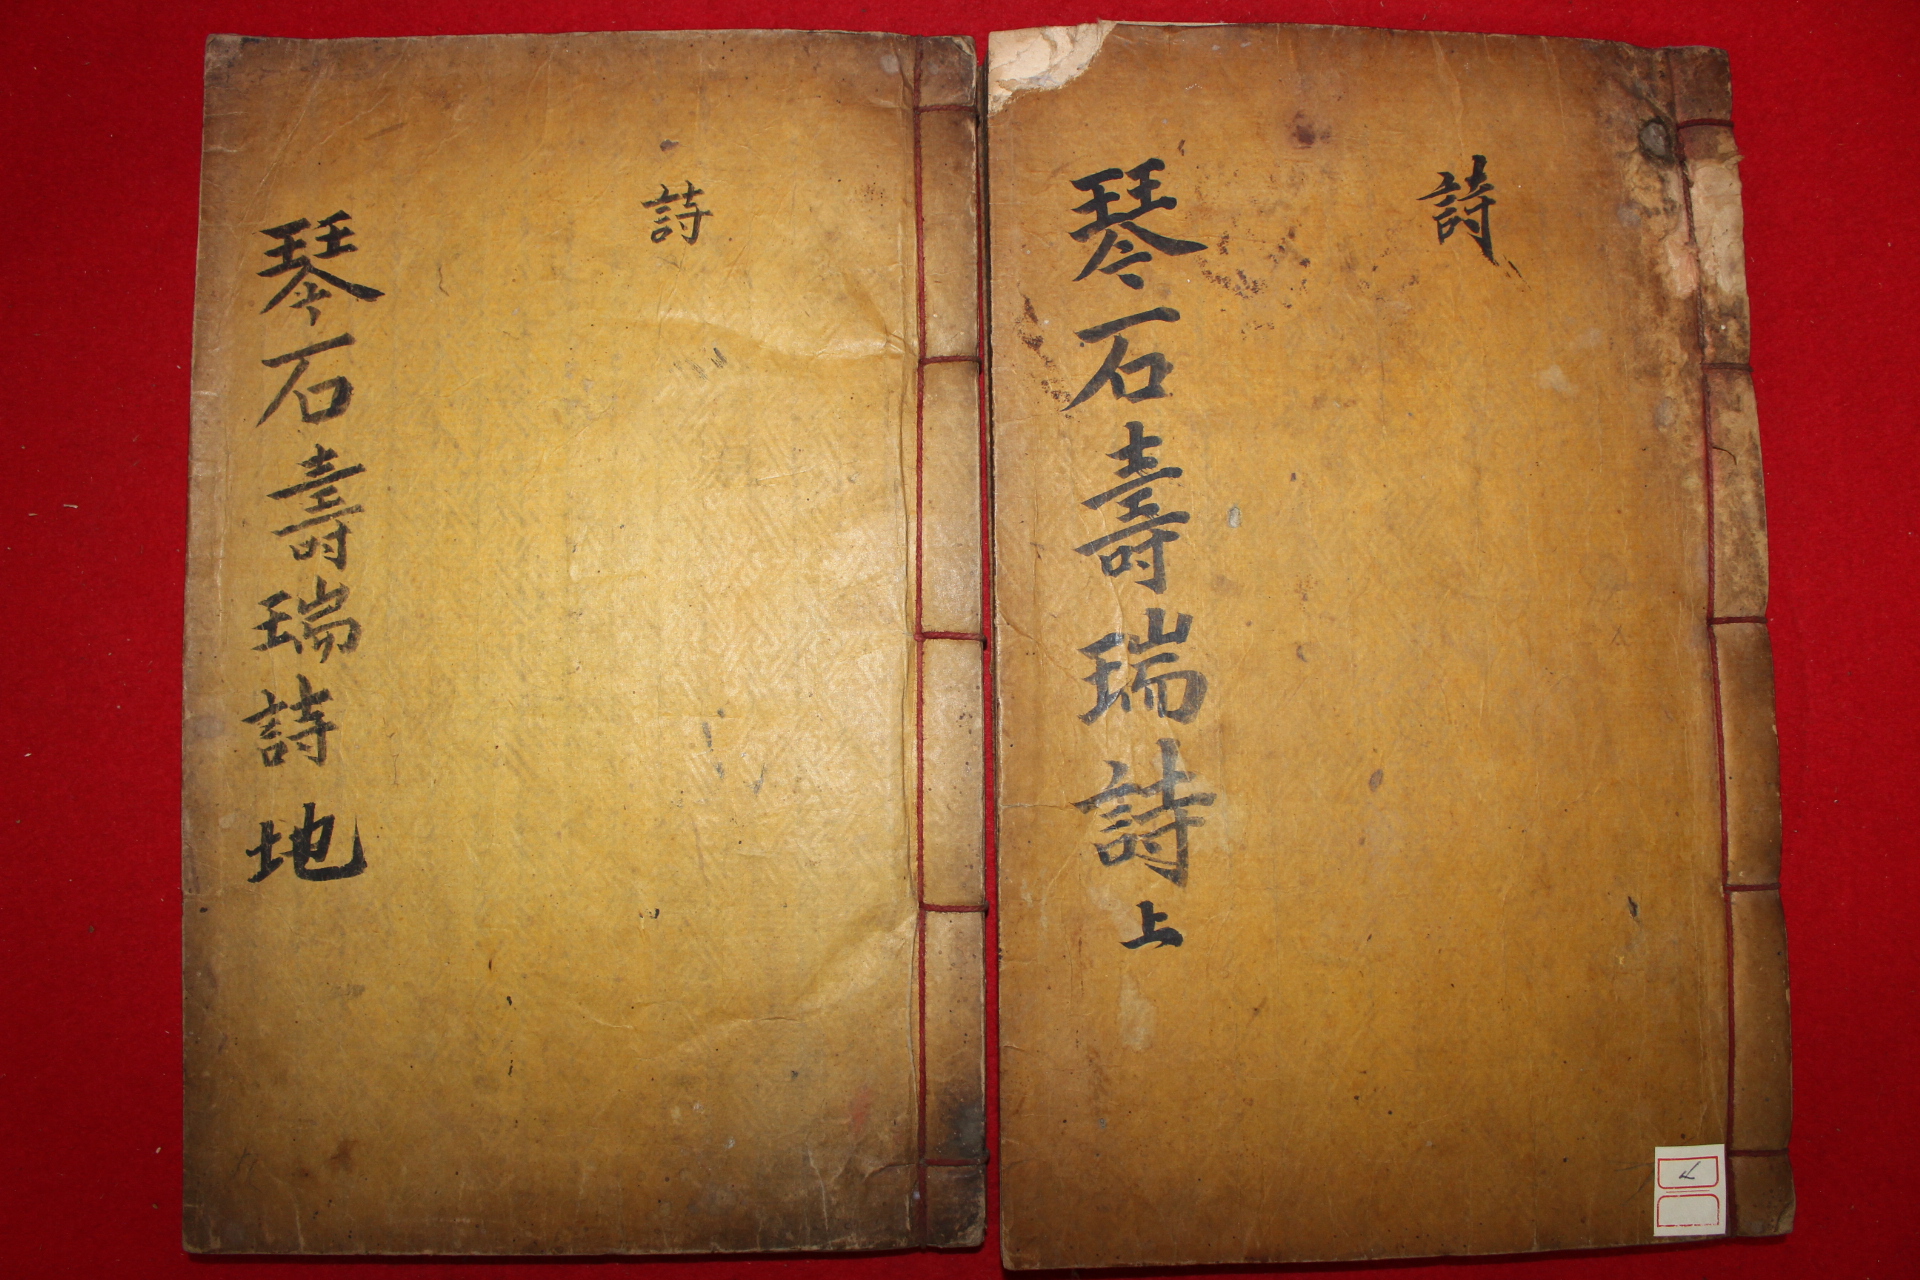 詩
琴石壽瑞詩 上
詩
琴石壽瑞詩 地